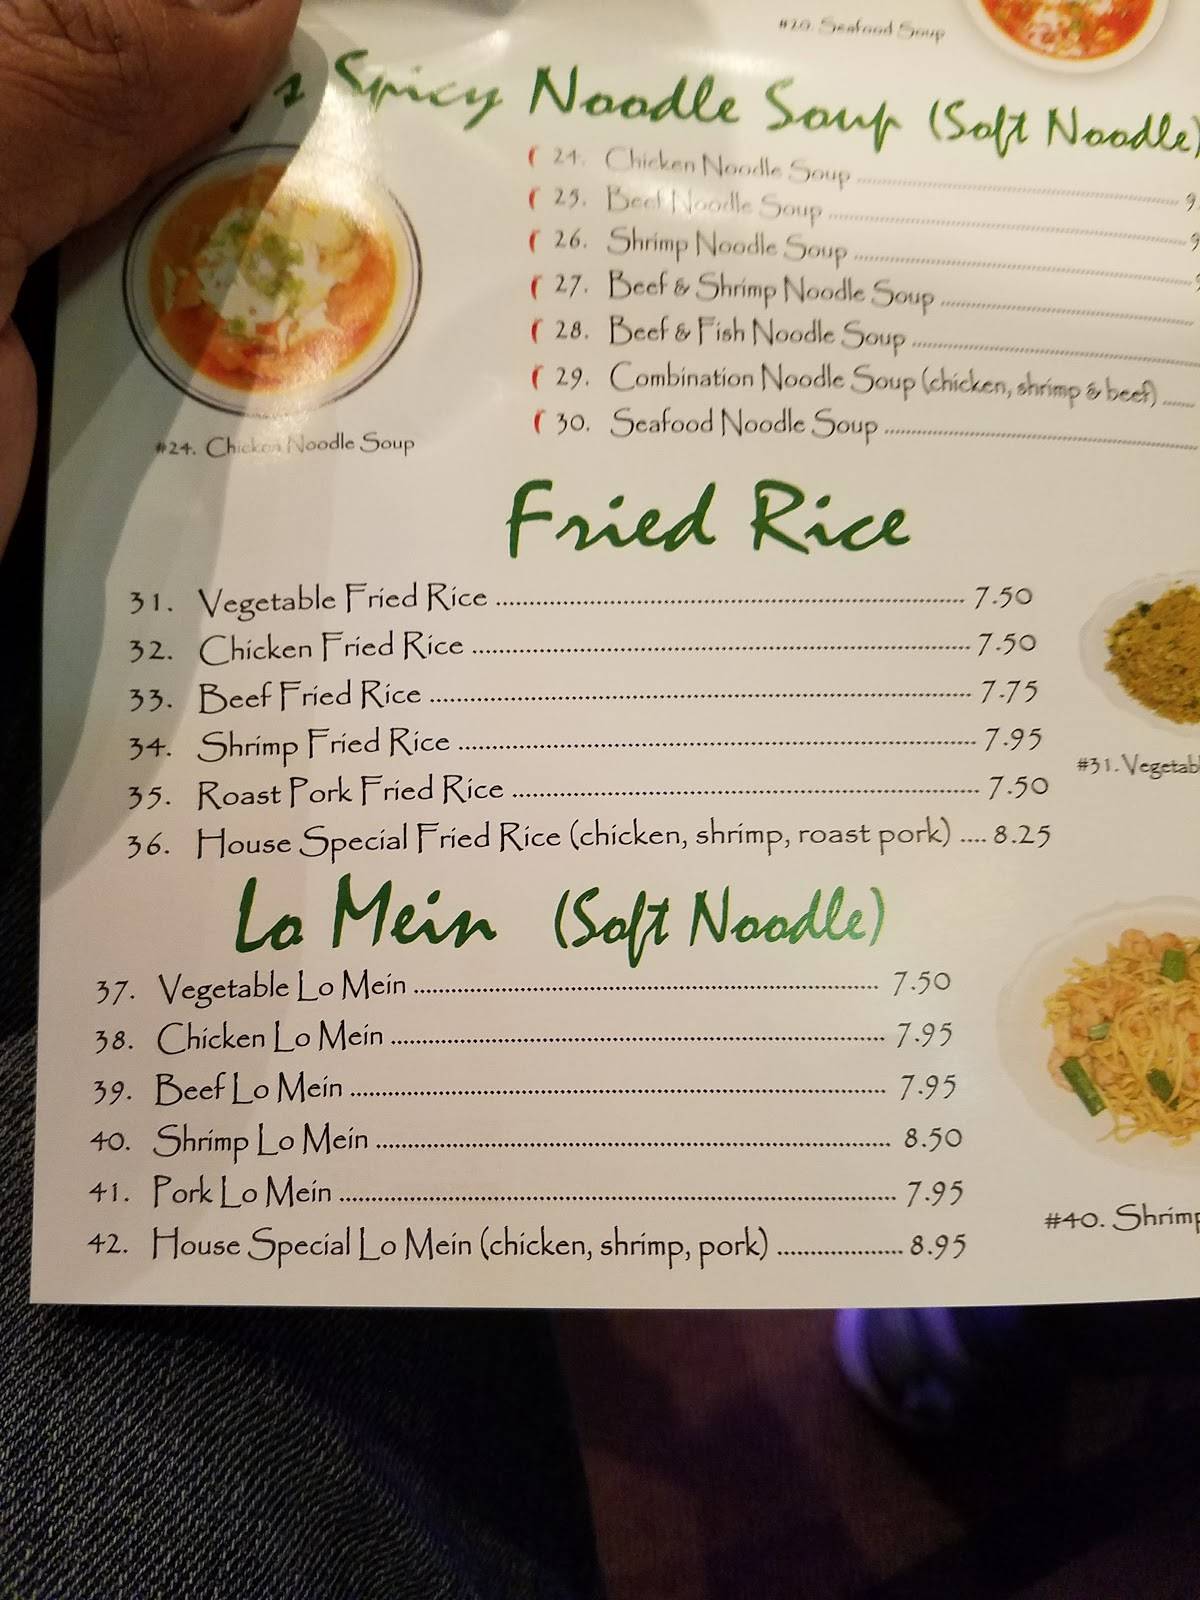 #20. Seafood Soup
's Spicy Noodle Soup (Soft Noodle)
24. Chicken Noodle Soup ........ 9.
25. Beef Noodle Soup ........ 9
26. Shrimp Noodle Soup ........ 9
27. Beef & Shrimp Noodle Soup ........
28. Beef & Fish Noodle Soup ........
29. Combination Noodle Soup (chicken, shrimp & beef) ........
30. Seafood Noodle Soup ........
#24. Chicken Noodle Soup
Fried Rice
31. Vegetable Fried Rice ........ 7.50
32. Chicken Fried Rice ........ 7.50
33. Beef Fried Rice ........ 7.75
34. Shrimp Fried Rice ........ 7.95
35. Roast Pork Fried Rice ........ 7.50
36. House Special Fried Rice (chicken, shrimp, roast pork) .... 8.25
#31. Vegetab
Lo Mein (Soft Noodle)
37. Vegetable Lo Mein ........ 7.50
38. Chicken Lo Mein ........ 7.95
39. Beef Lo Mein ........ 7.95
40. Shrimp Lo Mein ........ 8.50
41. Pork Lo Mein ........ 7.95
42. House Special Lo Mein (chicken, shrimp, pork) ........ 8.95
#40. Shrimp